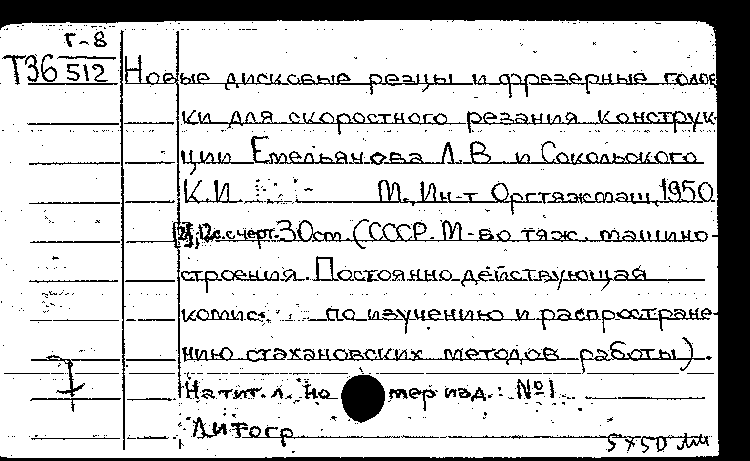 Г-8
Т36 512 Новые дисковые резцы и фрезерные голов
ки для скоростного резания конструк-
ции Емельянова Л.В и Сокольского
К.И М., Ин-т Оргтяжмаш, 1950
[2], 12с. с черт. 30 cm. (СССР. М-во тяж. машино-
строения. Постоянно действующая
комис. по изучению и распростране-
нию стахановских методов работы).
На тит. л. но мер изд.: №1
Литогр
5х50 мм